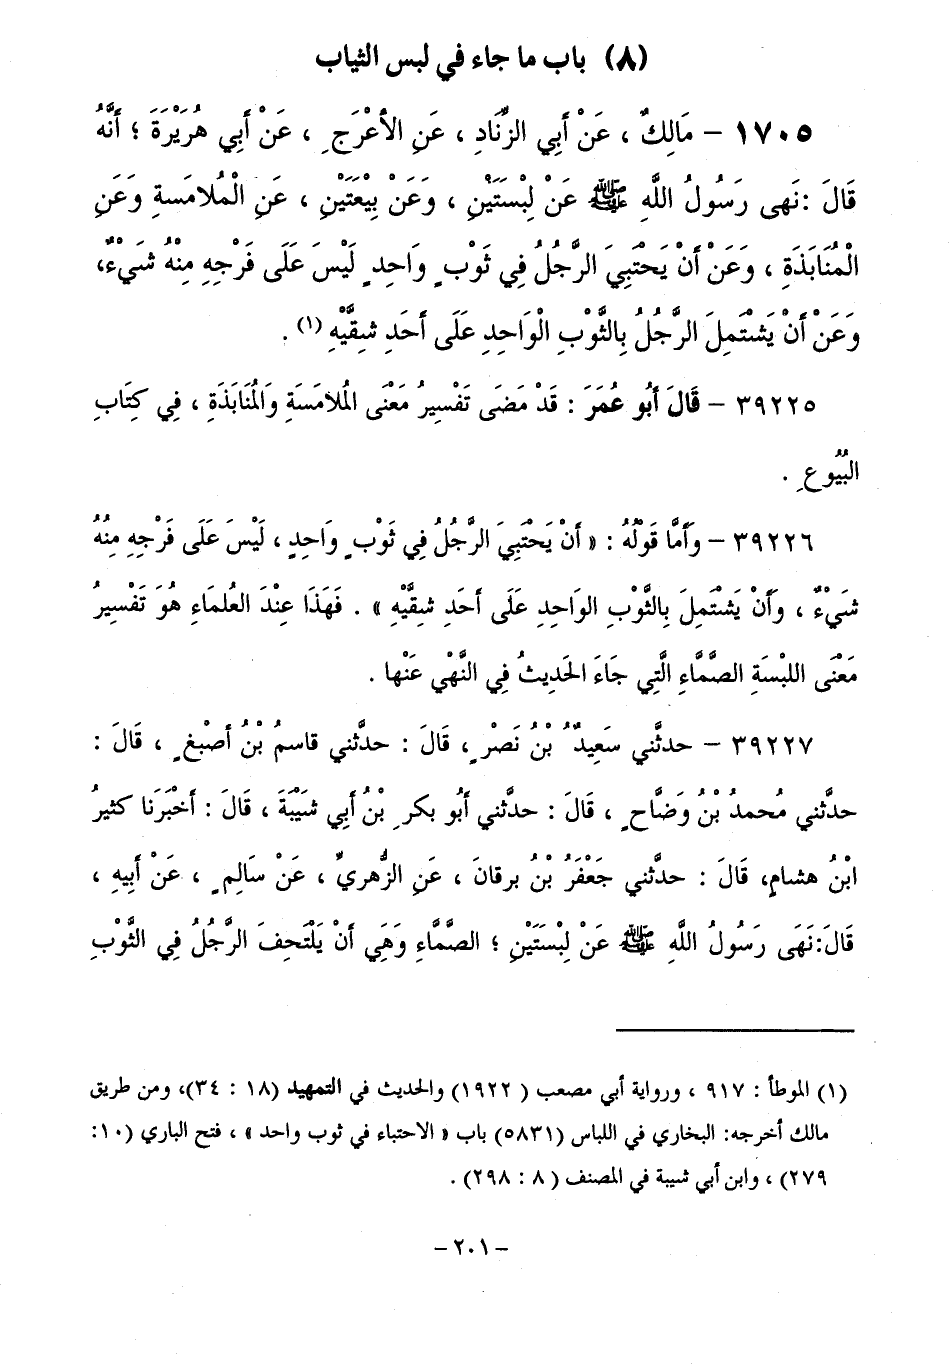 (٨) باب ما جاء في لبس الثياب
١٧٠٥ – مَالِكٌ ، عَنْ أَبِي الزِّنَادِ ، عَنِ الأَعْرَجِ ، عَنْ أَبِي هُرَيْرَةَ ؛ أَنَّهُ
قَالَ :نَهى رَسُولُ اللَّهِ ﷺ عَنْ لِبْسَتَيْنِ ، وَعَنْ بِيعَتَيْنِ ، عَنِ الْمُلامَسةِ وَعَنِ
الْمُنَابَذَةِ ، وَعَنْ أَنْ يَحْتَبِيَ الرَّجُلُ فِي ثَوْبٍ وَاحِدٍ لَيْسَ عَلَى فَرْجِهِ مِنْهُ شَيْءٌ،
وَعَنْ أَنْ يَشْتَمِلَ الرَّجُلُ بِالثَّوْبِ الْوَاحِدِ عَلَى أَحَدِ شِقَّيْهِ (١) .
٣٩٢٢٥ – قَالَ أَبُو عُمَرَ : قَدْ مَضَى تَفْسِيرُ مَعْنَى الْمُلامَسَةِ وَالْمُنَابَذَةِ ، فِي كِتَابِ
البُيُوعِ .
٣٩٢٢٦ – وَأَمَّا قَوْلُهُ : « أَنْ يَحْتَبِيَ الرَّجُلُ فِي ثَوْبٍ وَاحِدٍ ، لَيْسَ عَلَى فَرْجِهِ مِنْهُ
شَيْءٌ ، وَأَنْ يَشْتَمِلَ بِالثَّوْبِ الوَاحِدِ عَلَى أَحَدِ شِقَّيْهِ » . فَهَذَا عِنْدَ العُلمَاءِ هُوَ تَفْسِيرُ
مَعْنَى اللبْسَةِ الصَّمَّاءِ الَّتِي جَاءَ الحَدِيثُ فِي النَّهْيِ عَنْها .
٣٩٢٢٧ – حدثَّني سَعِيدُ بْنُ نَصْرٍ ، قَالَ : حدثَّني قاسمُ بْنُ أصْبغٍ ، قَالَ :
حدَّثني مُحمدُ بْنُ وَضَّاحٍ ، قَالَ : حدثَّني أَبُو بكرِ بْنُ أَبِي شَيْبَةَ ، قَالَ : أَخْبَرَنا كثيرُ
ابْنُ هشامٍ، قَالَ : حدثَّني جَعْفَرُ بْنُ برقانَ ، عَنِ الزُّهريِّ ، عَنْ سَالِمٍ ، عَنْ أَبِيهِ ،
قَالَ:نَهَى رَسُولُ اللَّهِ ﷺ عَنْ لِبْسَتَيْنِ ؛ الصَّمَّاءِ وَهِيَ أَنْ يَلْتَحفَ الرَّجُلُ فِي الثَّوْبِ
(١) الموطأ : ٩١٧ ، ورواية أبي مصعب ( ١٩٢٢) والحديث في التمهيد (١٨ : ٣٤)، ومن طريق
مالك أخرجه: البخاري في اللباس (٥٨٣١) باب « الاحتباء في ثوب واحد » ، فتح الباري (١٠:
٢٧٩) ، وابن أبي شيبة في المصنف (٨ : ٢٩٨) .
– ٢٠١ –